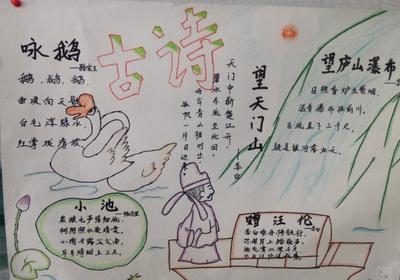 咏鹅
鹅、鹅、鹅、
曲项向天歌
白毛浮绿水
红掌拨清波
古诗
望天门山
—李白
天门中断楚江开，
碧水东流至此回。
两岸青山相对出，
孤帆一片日边来。
望庐山瀑布
日照香炉生紫烟，
遥看瀑布挂前川。
飞流直下三千尺，
疑是银河落九天。
小池
泉眼无声惜细流，
树阴照水爱晴柔。
小荷才露尖尖角，
早有蜻蜓立上头。
赠汪伦
李白乘舟将欲行，
忽闻岸上踏歌声。
桃花潭水深千尺，
不及汪伦送我情。